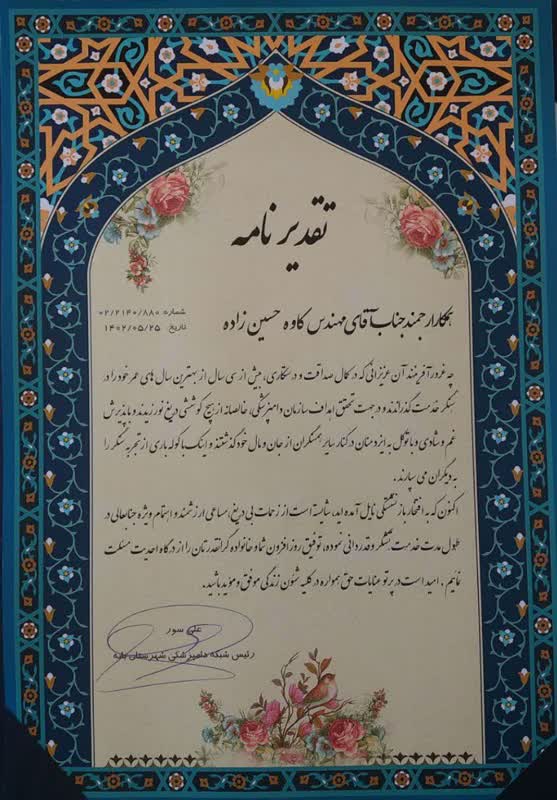 تقدیر نامه
شماره: ۰۲/۲۱۴۰/۸۸۰
تاریخ: ۱۴۰۲/۰۵/۲۵
همکار ارجمند جناب آقای مهندس کاوه حسین زاده
چه غرورآفرینند آن عزیزانی که در کمال صداقت و درستکاری، بیش از سی سال از بهترین سال های عمر خود را در
سنگر خدمت گذراندند و در جهت تحقق اهداف سازمان دامپزشکی، خالصانه از هیچ کوششی دریغ نورزیدند و با پذیرش
غم و شادی و با توکل به ایزد منان در کنار سایر همسنگران از جان و مال خود گذشتند و اینک با کوله باری از تجربه سنگر را
به دیگران می سپارند.
اکنون که به افتخار بازنشستگی نایل آمده اید، شایسته است از زحمات بی دریغ، مساعی ارزشمند و اهتمام ویژه جنابعالی در
طول مدت خدمت تشکر و قدردانی نموده، توفیق روز افزون شما و خانواده گرانقدرتان را از درگاه احدیت مسئلت
نمایم. امید است در پرتو عنایات حق همواره در کلیه شئون زندگی موفق و موید باشید.
علی سور
رئیس شبکه دامپزشکی شهرستان بانه